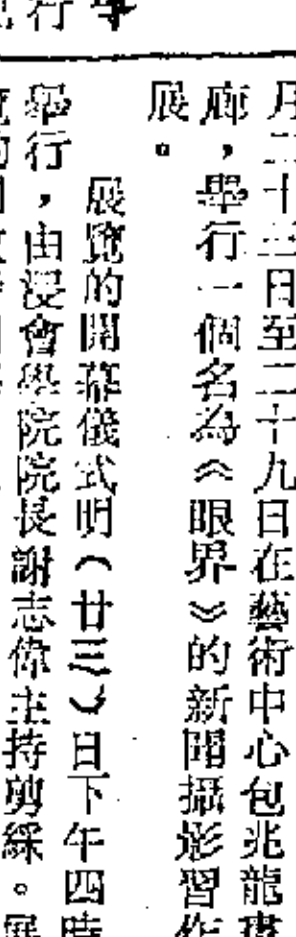 月二十三日至二十九日在藝術中心包兆龍畫
廊，舉行一個名為《眼界》的新聞攝影習作
展。
展覽的開幕儀式明（廿三）日下午四時
舉行，由浸會學院院長謝志偉主持剪綵。展